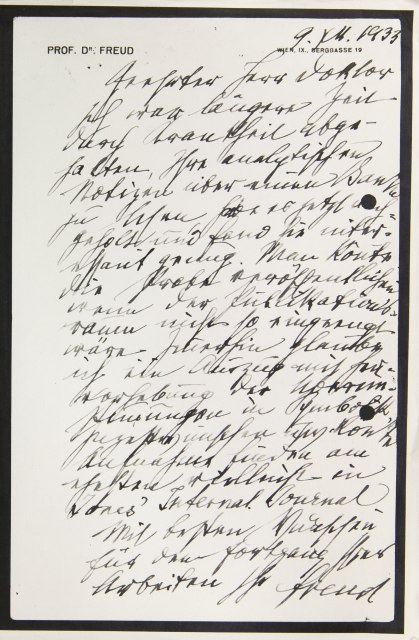 9. XII. 1933
PROF. DR. FREUD
WIEN, IX., BERGGASSE 19
Geehrter Herr Doktor
Ich war längere Zeit
durch Krankheit abge-
halten, Ihre analytischen
Notizen über einen
zu lesen, habe es jetzt nach-
geholt und fand sie inter-
essant genug. Man könnte
die Probe veröffentlichen
wenn der Publikations-
raum nicht so eingeengt
wäre. Immerhin glaube
ich ein Auszug mit Her-
vorhebung der Überein-
stimmungen in Symbolik
könnte
Aufnahme finden am
ehesten vielleicht in
Jones' Internal. Journal
Mit besten Wünschen
für den Fortgang Ihrer
Arbeiten Ihr Freud